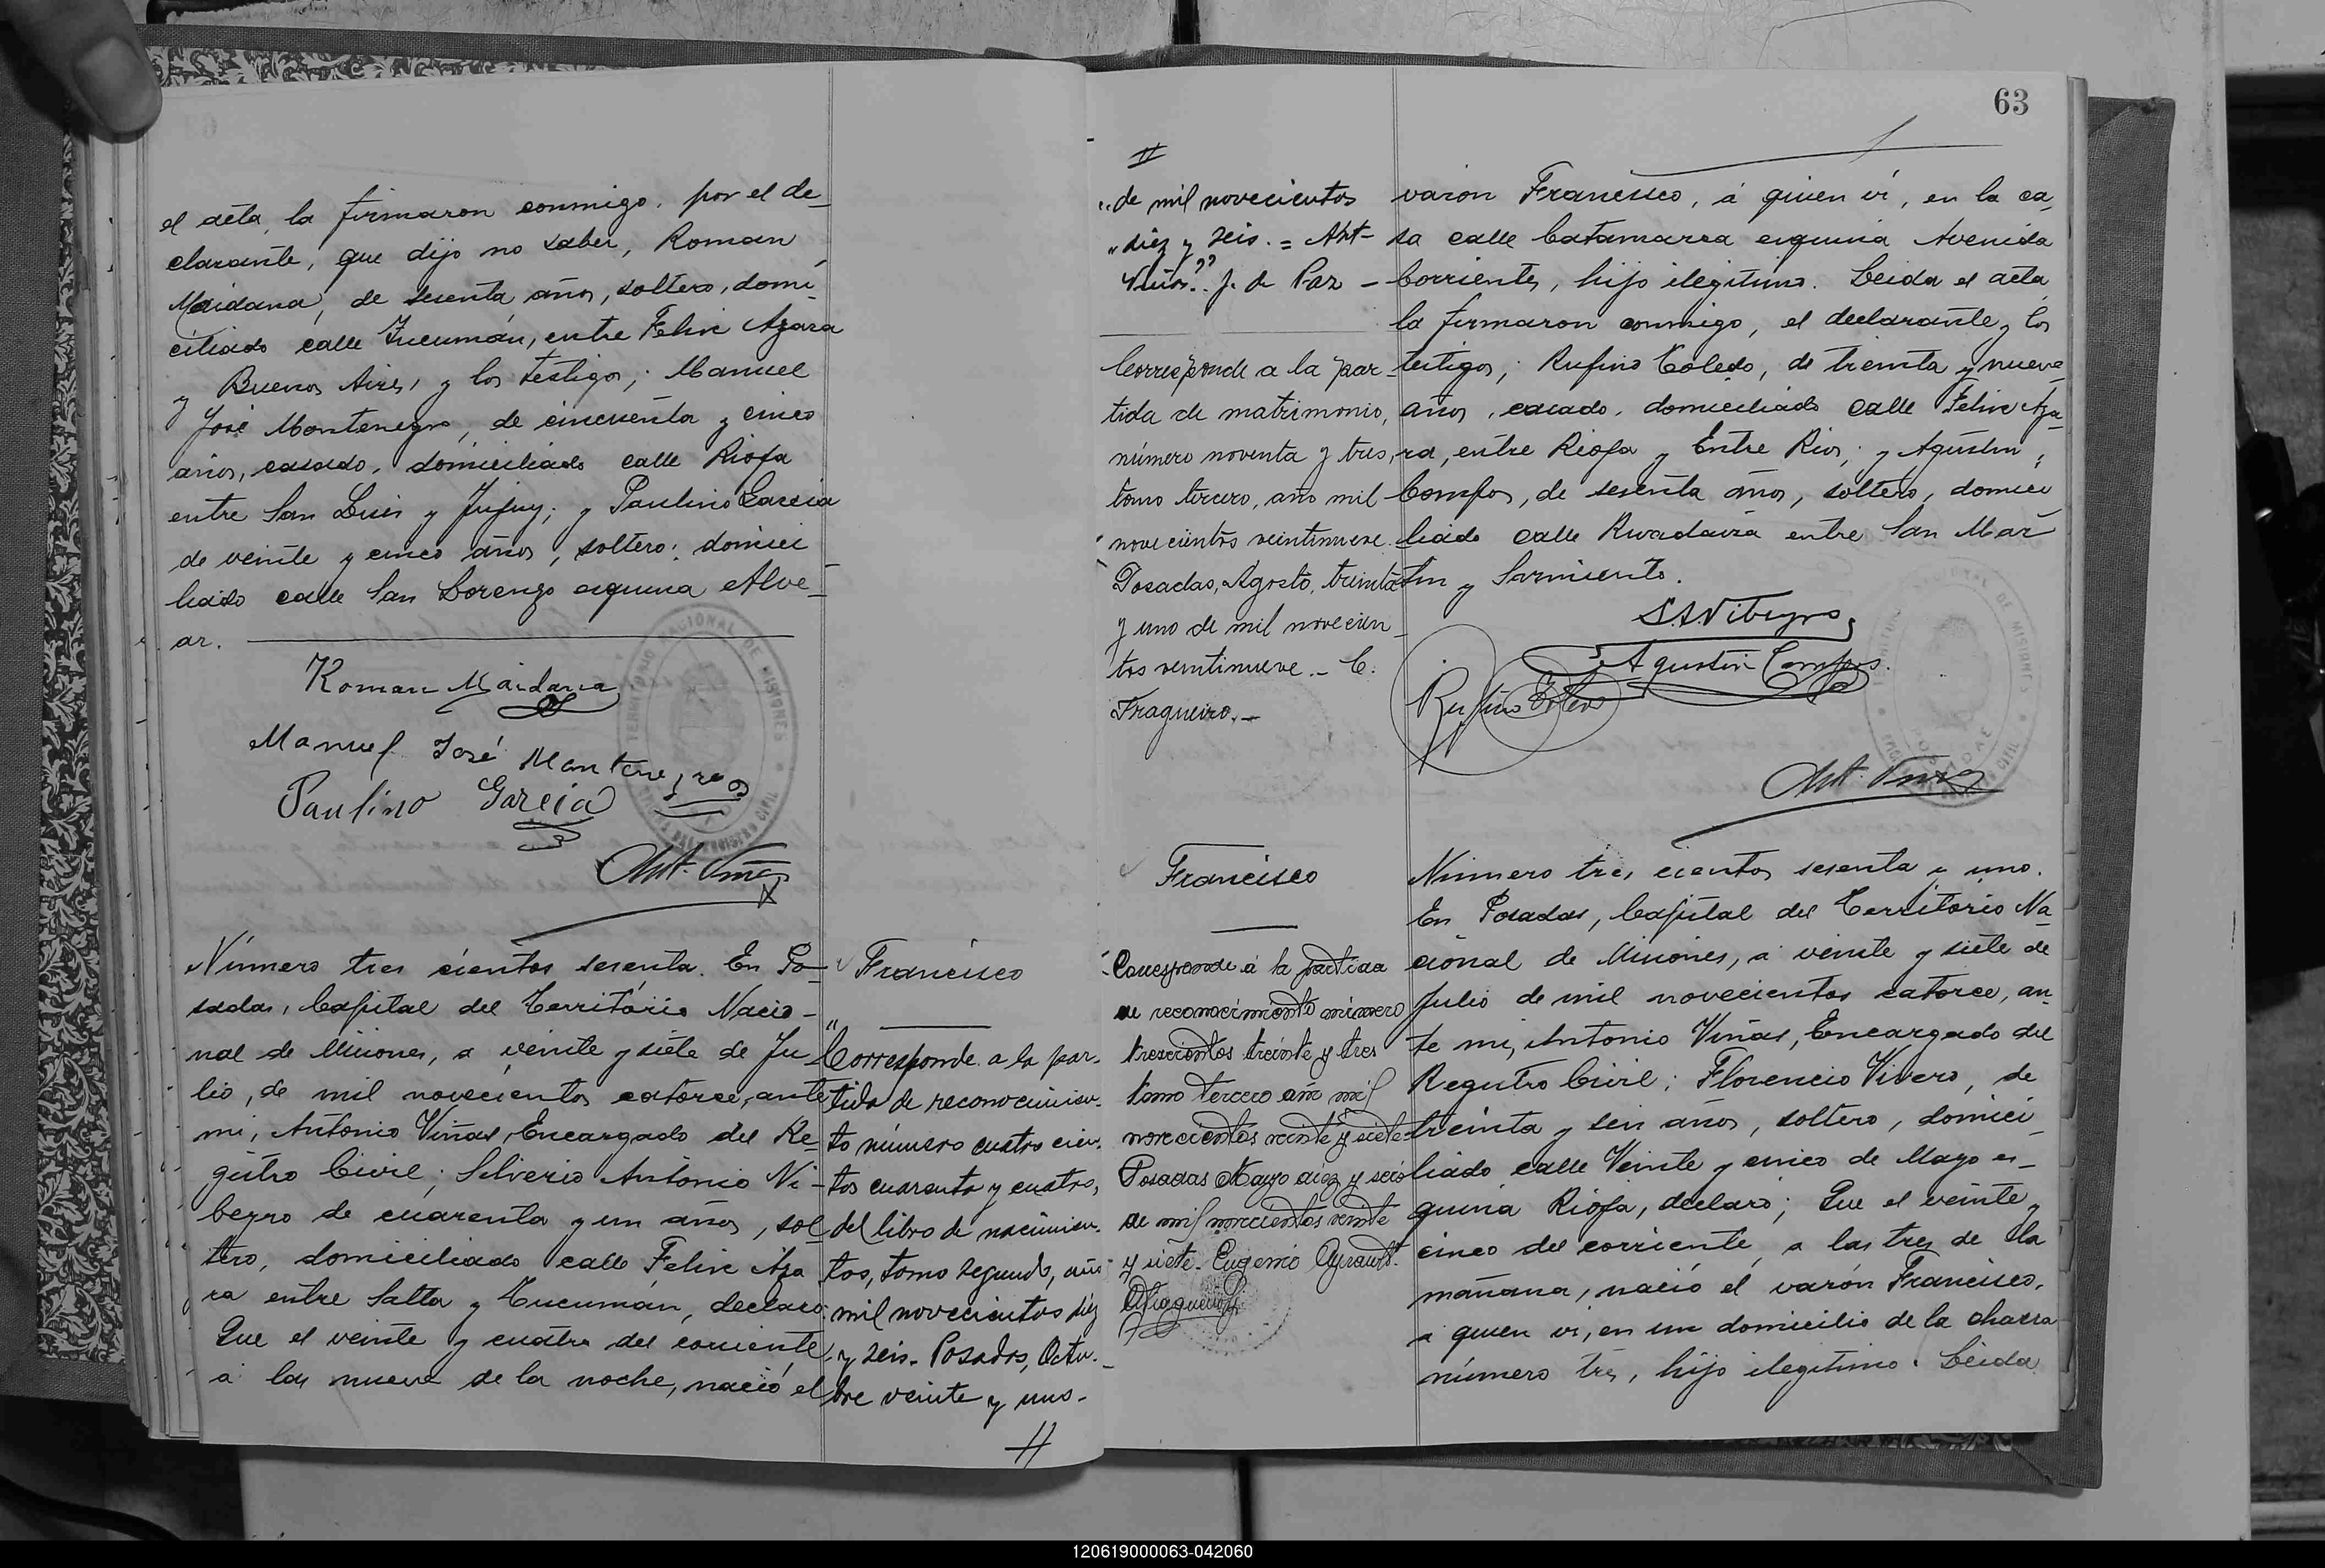 el acta, la firmaron conmigo, por el de-
clarante, que dijo no saber, Roman
Maidana, de sesenta años, soltero, domi-
ciliado calle Tucumán, entre Felix Azara
y Buenos Aires, y los testigos; Manuel
José Montenegro, de cincuenta y cinco
años, casado, domiciliado calle Rioja
entre San Luis y Jujuy; y Paulino Garcia
de veinte y cinco años, soltero, domici-
liado calle San Lorenzo esquina Alve-
ar.
Roman Maidana
Manuel José Montenegro
Paulino Garcia
Ant. Viñas
Número tres cientos sesenta. En Po-
sadas, Capital del Territorio Nacio-
nal de Misiones, a veinte y siete de Ju-
lio, de mil novecientos catorce, ante
mi, Antonio Viñas, Encargado del Re-
gistro Civil; Silverio Antonio Ni-
beyro de cuarenta y un años, sol-
tero, domiciliado calle Felix Aza
ra entre Salta y Tucumán, declaró:
Que el veinte y cuatro del corriente
a las nueve de la noche, nació el
Francisco
" Corresponde a la par-
tida de reconocimien-
to número cuatro cien-
tos cuarenta y cuatro,
del libro de nacimien-
tos, tomo segundo, año
mil novecientos diez
y seis. Posadas, Octu-
bre veinte y uno-
//
63
//
"de mil novecientos
"diez y seis. = Ant-
Viñas?? J. de Paz -
Corresponde a la par-
tida de matrimonio,
número noventa y tres,
tomo tercero, año mil
novecientos veintinueve.
Posadas, Agosto, treinta
y uno de mil novecien-
tos veintinueve.- C.
Fragueiro.-
varon Francisco, á quien ví, en la ca-
sa calle Catamarca esquina Avenida
Corrientes, hijo ilegitimo. Leida el acta
la firmaron conmigo, el declarante y los
testigos; Rufino Toledo, de treinta y nueve
años, casado, domiciliado calle Felix Aza-
ra, entre Rioja y Entre Rios; y Agustin
Campos, de sesenta años, soltero, domici
liado calle Rivadavia entre San Mar
tin y Sarmiento.
S.A. Nibeyro
Agustin Campos.
Rufino Toledo
Ant. Viñas
Francisco
Corresponde á la partida
de reconocimiento número
trescientos treinta y tres
tomo tercero año mil
novecientos veinte y siete
Posadas Mayo diez y seis
de mil novecientos veinte
y siete. Eugenio Ayrault.
Número tres cientos sesenta y uno.
En Posadas, Capital del Territorio Na-
cional de Misiones, a veinte y siete de
Julio de mil novecientos catorce, an-
te mi, Antonio Viñas, Encargado del
Registro Civil; Florencio Vivero, de
treinta y seis años, soltero, domici-
liado calle Veinte y cinco de Mayo es-
quina Rioja, declaró; Que el veinte y
cinco del corriente, a las tres de la
mañana, nació el varón Francisco,
a quien ví, en un domicilio de la chacra
número tres, hijo ilegitimo. Leida
120619000063-042060